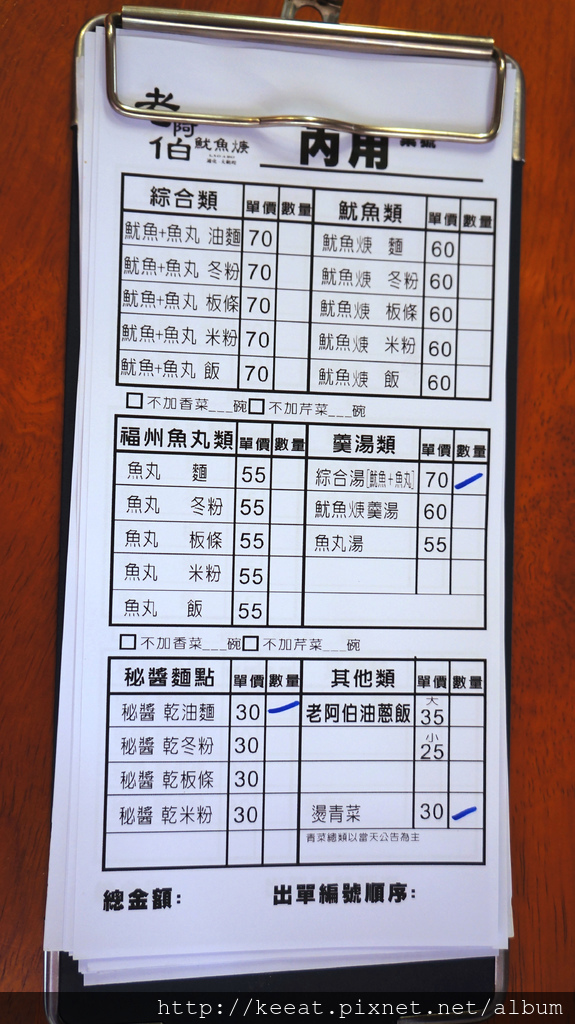 老阿伯
魷魚焿
內用
綜合類 單價 數量 魷魚類 單價 數量
魷魚+魚丸 油麵 70 魷魚焿 麵 60
魷魚+魚丸 冬粉 70 魷魚焿 冬粉 60
魷魚+魚丸 板條 70 魷魚焿 板條 60
魷魚+魚丸 米粉 70 魷魚焿 米粉 60
魷魚+魚丸 飯 70 魷魚焿 飯 60
不加香菜___碗 不加芹菜___碗
福州魚丸類 單價 數量 羹湯類 單價 數量
魚丸 麵 55 綜合湯[魷魚+魚丸] 70
魚丸 冬粉 55 魷魚焿羹湯 60
魚丸 板條 55 魚丸湯 55
魚丸 米粉 55
魚丸 飯 55
不加香菜___碗 不加芹菜___碗
秘醬麵點 單價 數量 其他類 單價 數量
秘醬 乾油麵 30 老阿伯油蔥飯 大 35
秘醬 乾冬粉 30 小 25
秘醬 乾板條 30
秘醬 乾米粉 30 燙青菜 30
青菜總類以當天公告為主
總金額: 出單編號順序:
http://keeat.pixnet.net/album